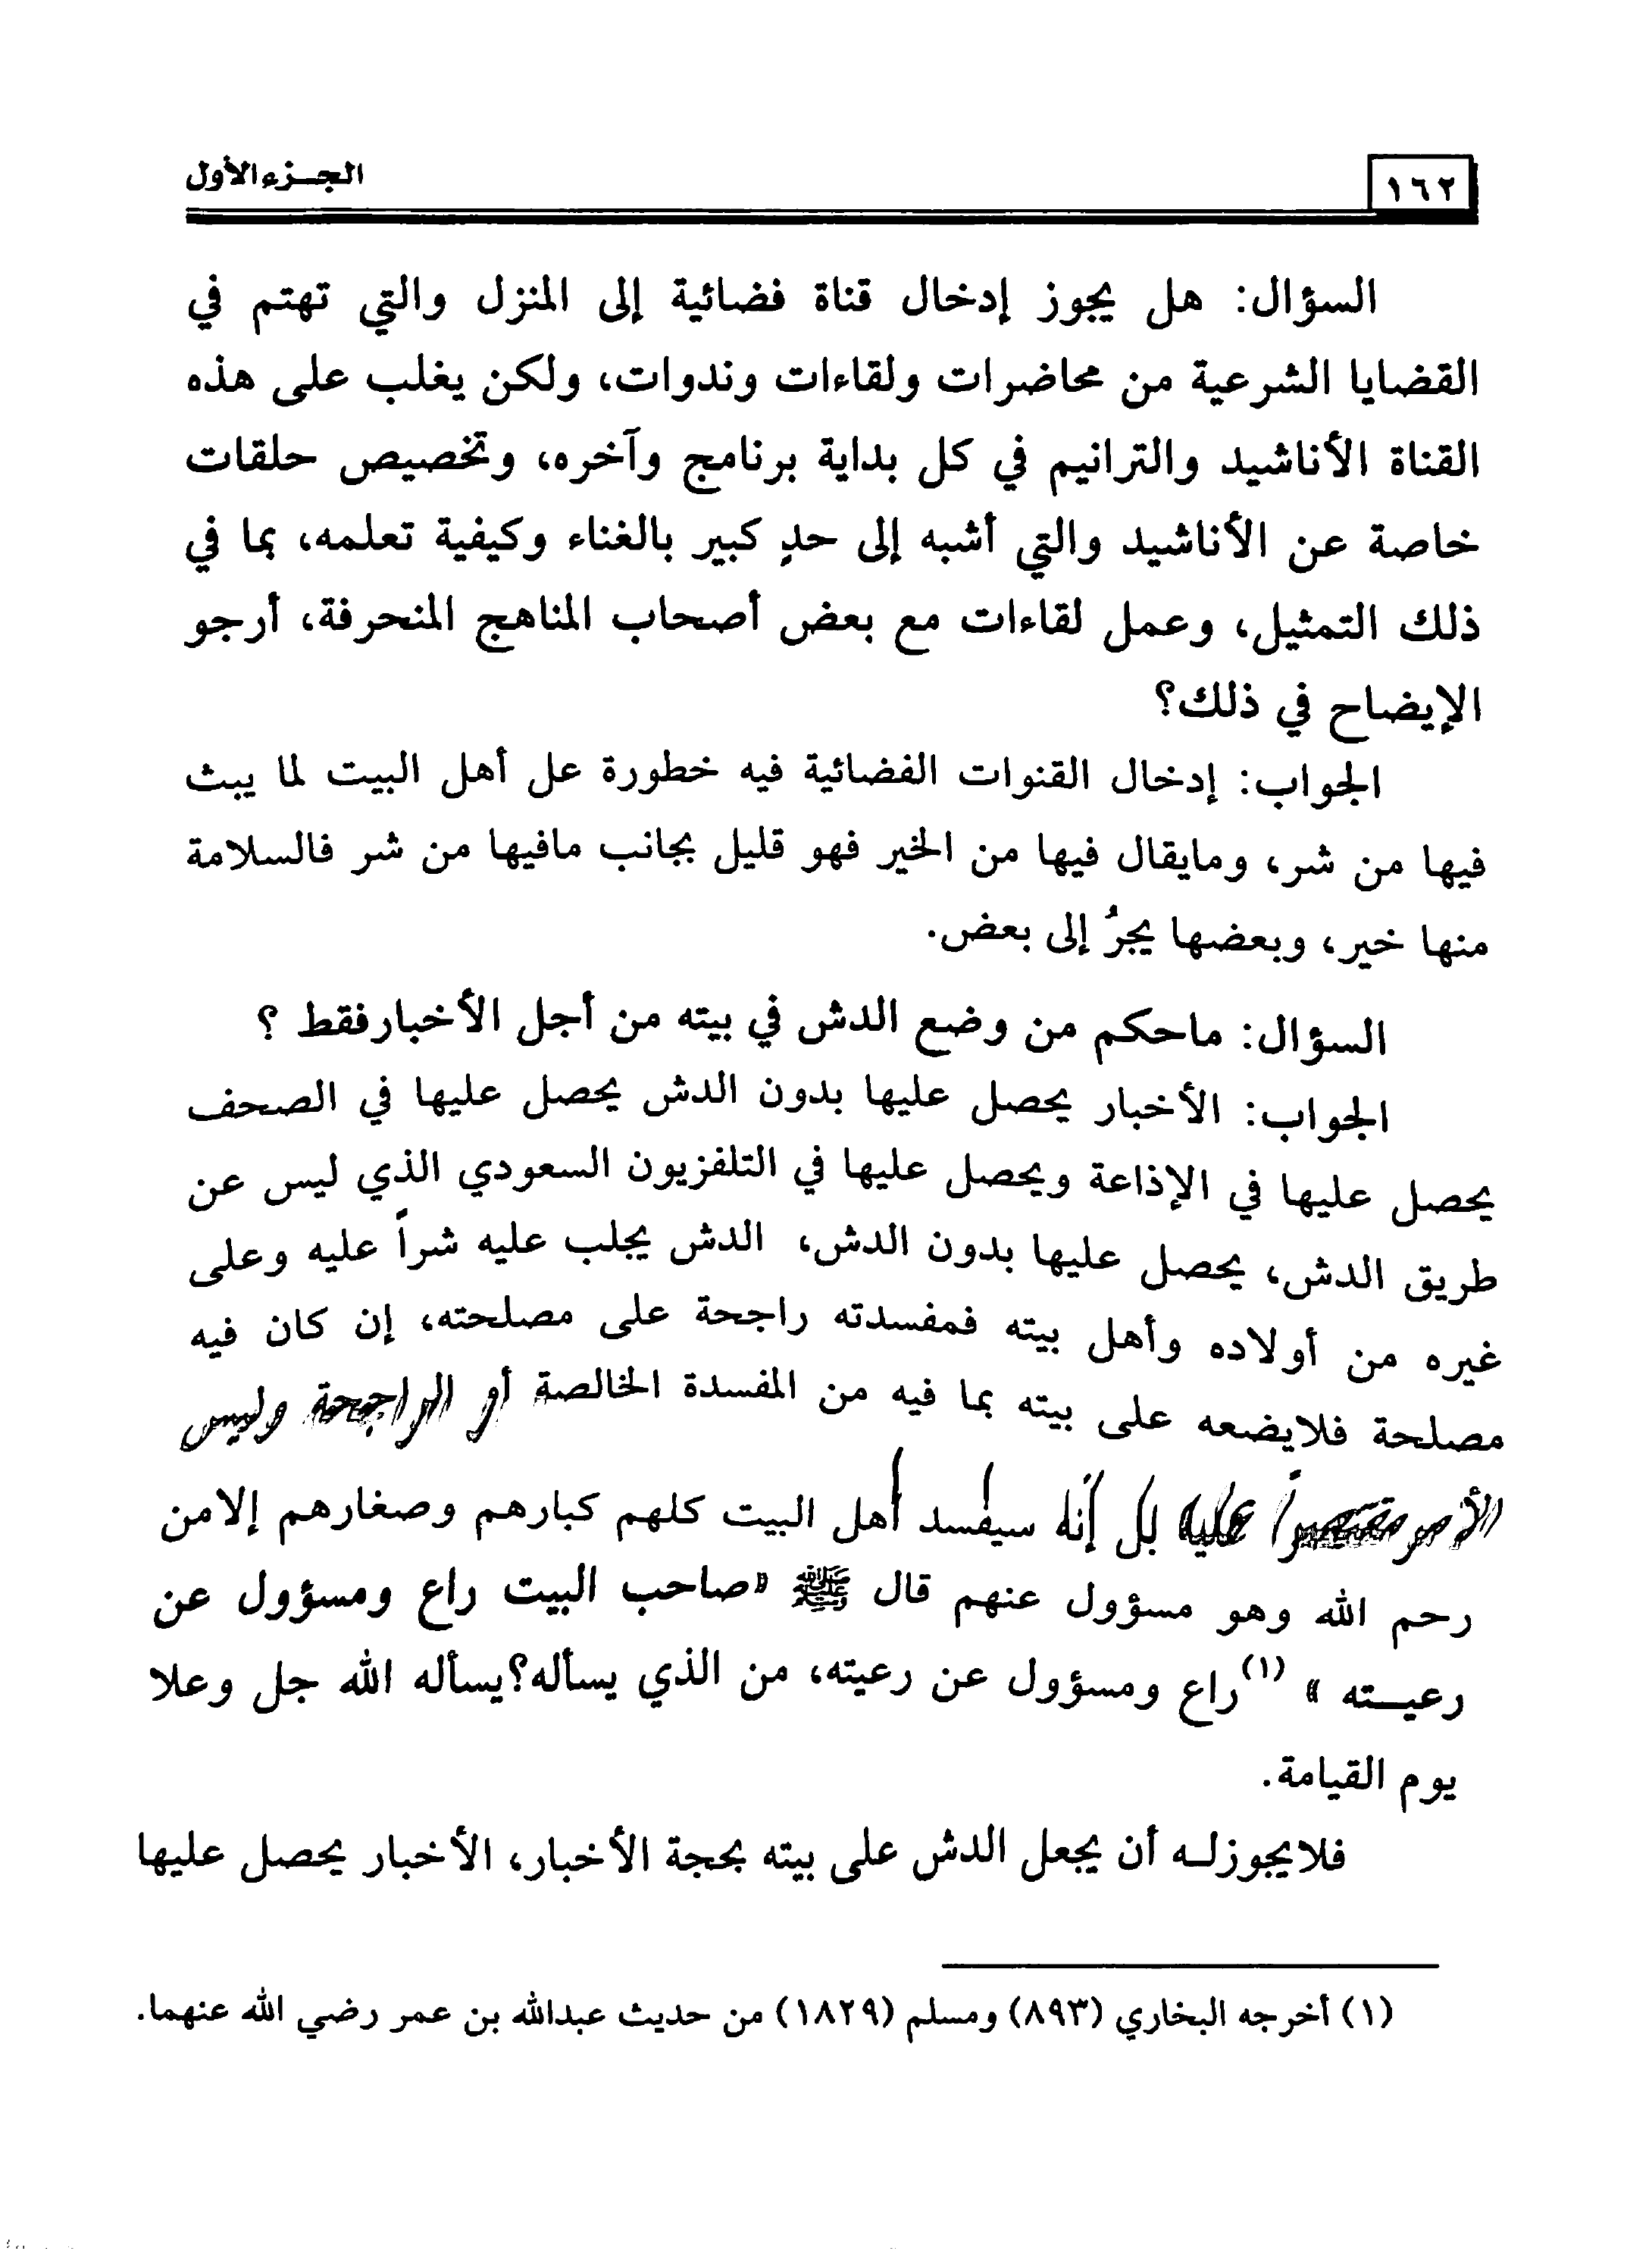 ١٦٢
الجـزء الأول
السؤال: هل يجوز إدخال قناة فضائية إلى المنزل والتي تهتم في
القضايا الشرعية من محاضرات ولقاءات وندوات، ولكن يغلب على هذه
القناة الأناشيد والترانيم في كل بداية برنامج وآخره، وتخصيص حلقات
خاصة عن الأناشيد والتي أشبه إلى حدٍ كبير بالغناء وكيفية تعلمه، بما في
ذلك التمثيل، وعمل لقاءات مع بعض أصحاب المناهج المنحرفة، أرجو
الإيضاح في ذلك؟
الجواب: إدخال القنوات الفضائية فيه خطورة عل أهل البيت لما يبث
فيها من شر، ومايقال فيها من الخير فهو قليل بجانب مافيها من شر فالسلامة
منها خير، وبعضها يجرُ إلى بعض.
السؤال: ماحكم من وضع الدش في بيته من أجل الأخبارفقط ؟
الجواب: الأخبار يحصل عليها بدون الدش يحصل عليها في الصحف
يحصل عليها في الإذاعة ويحصل عليها في التلفزيون السعودي الذي ليس عن
طريق الدش، يحصل عليها بدون الدش، الدش يجلب عليه شراً عليه وعلى
غيره من أولاده وأهل بيته فمفسدته راجحة على مصلحته، إن كان فيه
مصلحة فلايضعه على بيته بما فيه من المفسدة الخالصة أو الراجحة وليس
الأمر مقتصراً عليه بل إنه سيفسد أهل البيت كلهم كبارهم وصغارهم إلامن
رحم الله وهو مسؤول عنهم قال ﷺ «صاحب البيت راع ومسؤول عن
رعيـته » (١)راع ومسؤول عن رعيته، من الذي يسأله؟يسأله الله جل وعلا
يوم القيامة.
فلايجوزلـه أن يجعل الدش على بيته بحجة الأخبار، الأخبار يحصل عليها
(١) أخرجه البخاري (٨٩٣) ومسلم (١٨٢٩) من حديث عبدالله بن عمر رضي الله عنهما.